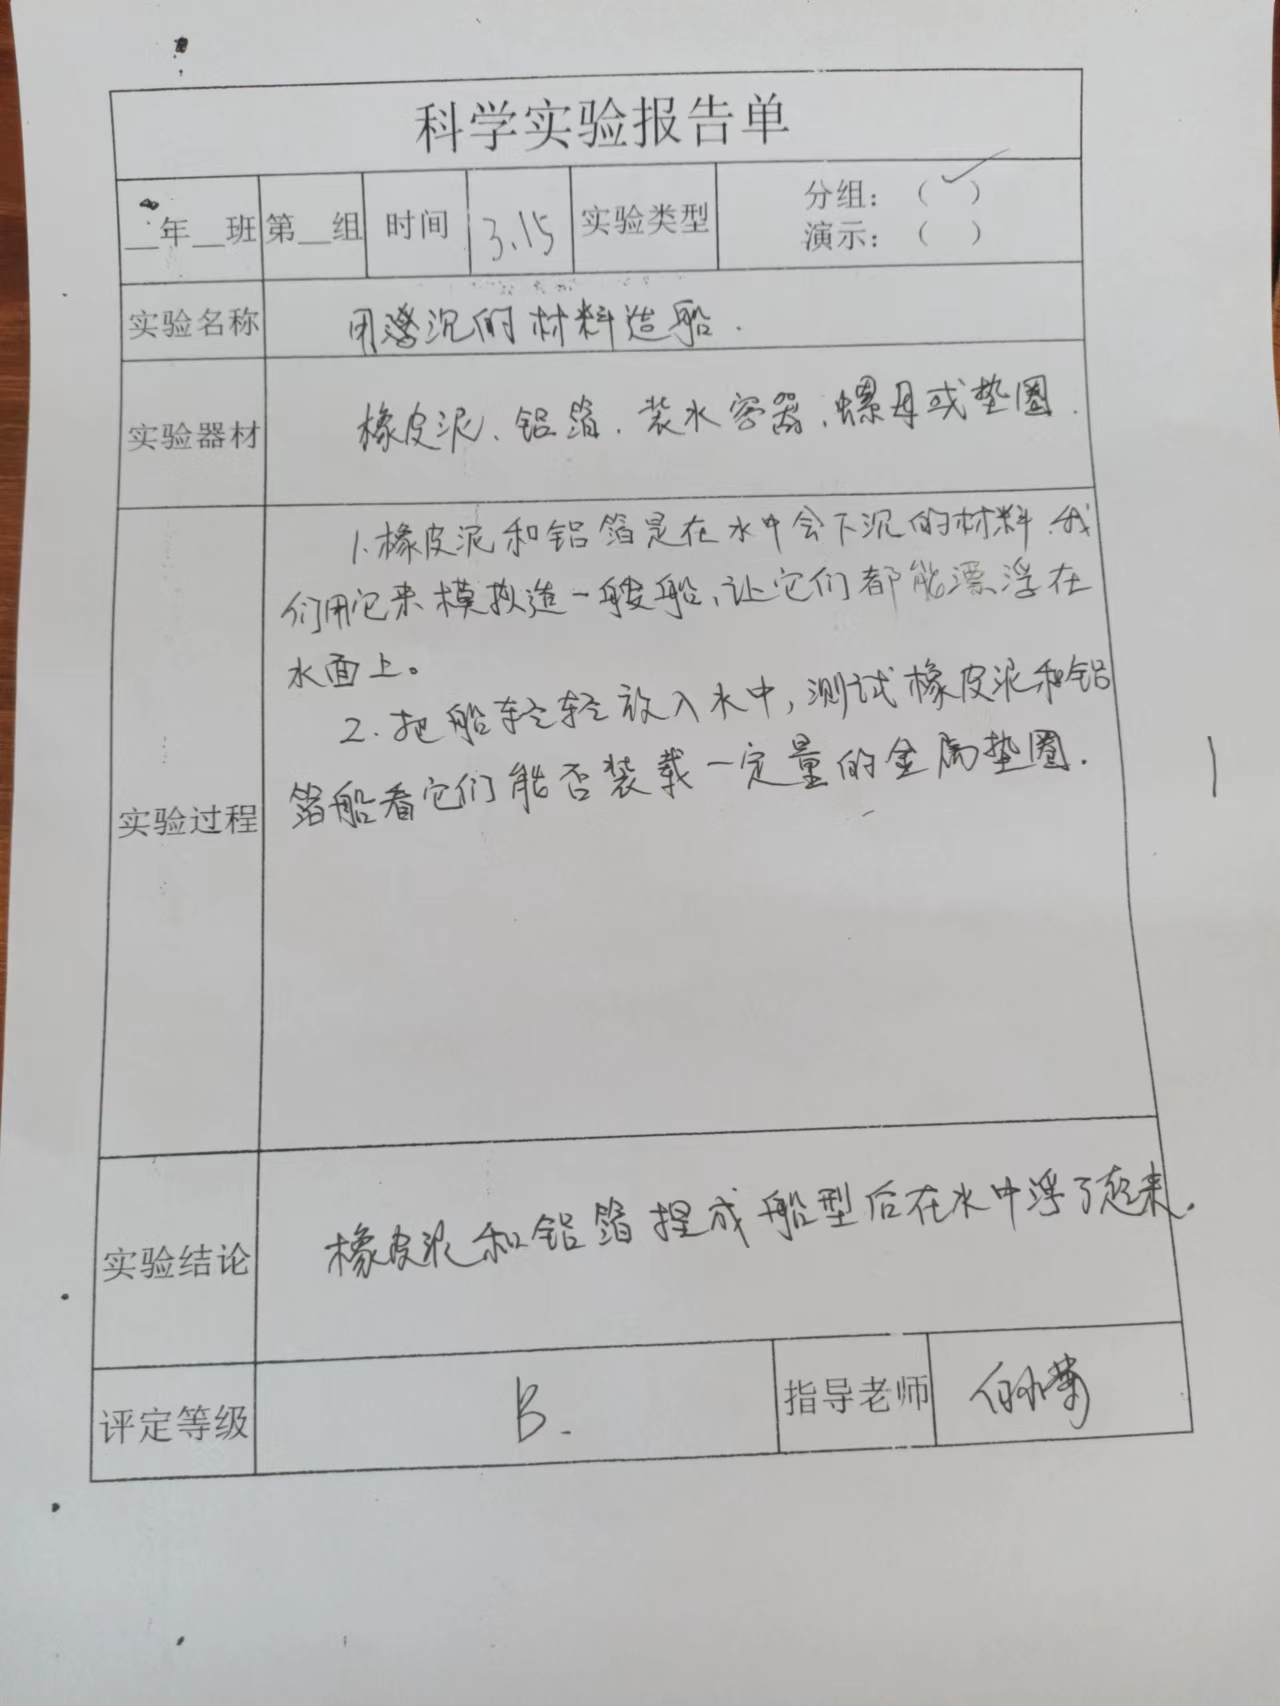 科学实验报告单
__年__班 第__组 时间 3.15 实验类型 分组：（✓）
演示：（ ）
实验名称 用沉的材料造船.
实验器材 橡皮泥、铝箔、装水容器、螺母或垫圈.
1.橡皮泥和铝箔是在水中会下沉的材料.我
们用它来模拟造一艘船,让它们都能漂浮在
水面上。
2.把船轻轻放入水中,测试橡皮泥和铝
箔船看它们能否装载一定量的金属垫圈.
实验过程
实验结论 橡皮泥和铝箔捏成船型后在水中浮了起来.
评定等级 B. 指导老师